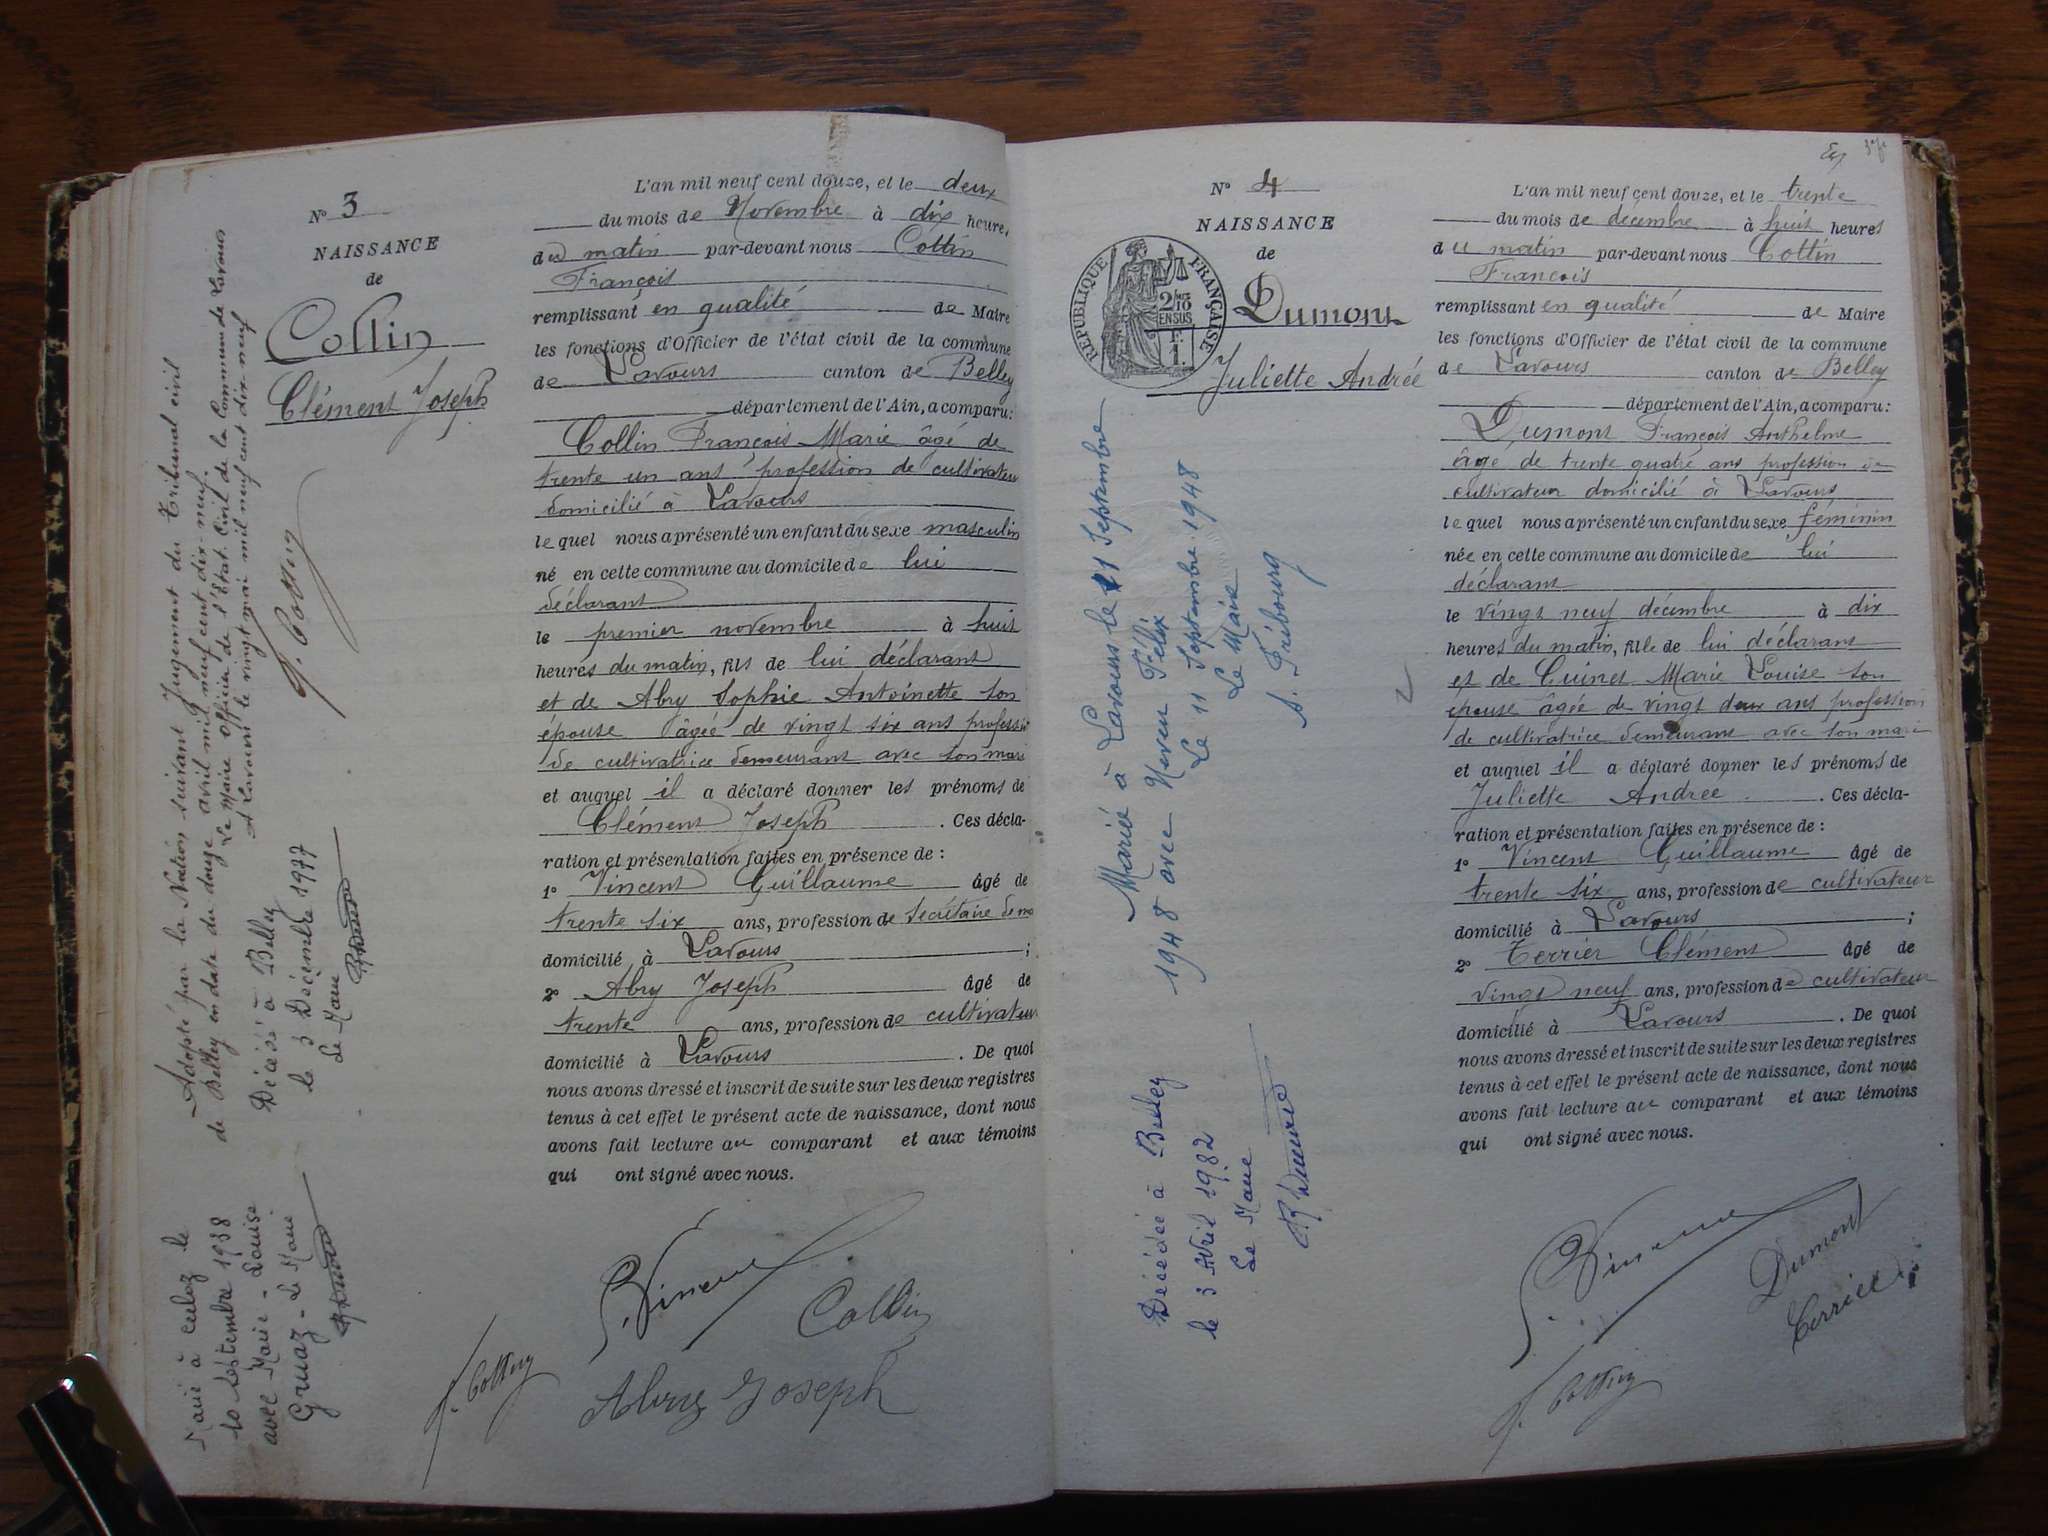 N° 3
NAISSANCE
de
Collin
Clément Joseph
L'an mil neuf cent douze, et le deux
du mois de Novembre à dix heures
du matin par-devant nous Cottin
François
remplissant en qualité de Maire
les fonctions d'Officier de l'état civil de la commune
de Lavours canton de Belley
département de l'Ain, a comparu:
Collin François Marie âgé de
trente un ans profession de cultivateur
domicilié à Lavours
lequel nous a présenté un enfant du sexe masculin
né en cette commune au domicile de lui
déclarant
le premier novembre à huit
heures du matin, fils de lui déclarant
et de Abry Sophie Antoinette son
épouse âgée de vingt six ans profession
de cultivatrice demeurant avec son mari
et auquel il a déclaré donner les prénoms de
Clément Joseph . Ces décla-
ration et présentation faites en présence de :
1° Vincent Guillaume âgé de
trente six ans, profession de Secrétaire de
domicilié à Lavours ;
2° Abry Joseph âgé de
trente ans, profession de cultivateur
domicilié à Lavours . De quoi
nous avons dressé et inscrit de suite sur les deux registres
tenus à cet effet le présent acte de naissance, dont nous
avons fait lecture au comparant et aux témoins
qui ont signé avec nous.
G. Vincent
Collin
f. Cottin
Abry Joseph
Adopté par la Nation suivant Jugement du Tribunal civil
de Belley en date du douze avril mil neuf cent dix-neuf.
Le Maire Officier de l'Etat Civil de la Commune de Lavours
A Lavours le vingt mai mil neuf cent dix neuf
f. Cottin
Décédé à Belley
le 3 Décembre 1977
Le Maire
Marié à Culoz le
10 Septembre 1938
avec Marie-Louise
Gruaz - Le Maire
N° 4
NAISSANCE
de
REPUBLIQUE FRANÇAISE
2/10 EN SUS
F.
1.
Dumont
Juliette Andrée
L'an mil neuf cent douze, et le trente
du mois de décembre à huit heures
du matin par-devant nous Cottin
François
remplissant en qualité de Maire
les fonctions d'Officier de l'état civil de la commune
de Lavours canton de Belley
département de l'Ain, a comparu:
Dumont François Anthelme
âgé de trente quatre ans profession de
cultivateur domicilié à Lavours
lequel nous a présenté un enfant du sexe féminin
née en cette commune au domicile de lui
déclarant
le vingt neuf décembre à dix
heures du matin, fille de lui déclarant
et de Guinet Marie Louise son
épouse âgée de vingt deux ans profession
de cultivatrice demeurant avec son mari
et auquel il a déclaré donner les prénoms de
Juliette Andrée . Ces décla-
ration et présentation faites en présence de :
1° Vincent Guillaume âgé de
trente six ans, profession de cultivateur
domicilié à Lavours ;
2° Terrier Clément âgé de
vingt neuf ans, profession de cultivateur
domicilié à Lavours . De quoi
nous avons dressé et inscrit de suite sur les deux registres
tenus à cet effet le présent acte de naissance, dont nous
avons fait lecture au comparant et aux témoins
qui ont signé avec nous.
G. Vincent
Dumont
Terrier
f. Cottin
Marié à Lavours le 11 Septembre
1948 avec Neveu Félix
Le 11 Septembre 1948
Le Maire
A. Fribourg
Décédée à Belley
le 3 Avril 1982
Le Maire